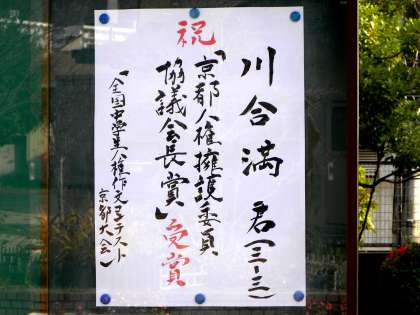 川合満君(三-三)
祝
「京都人権擁護委員
協議会長賞」受賞
「全国中学生人権作文コンテスト
京都大会」